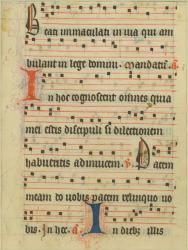 Beati immaculati in uia qui am
bulant in lege domini. Mandatu. a.
In hoc cognoscent omnes quia
mei estis discipuli si dilectionem
habueritis adinuicem. v. Pacem
meam do uobis pacem relinquo uo
bis. In hoc. a. In dieb illis